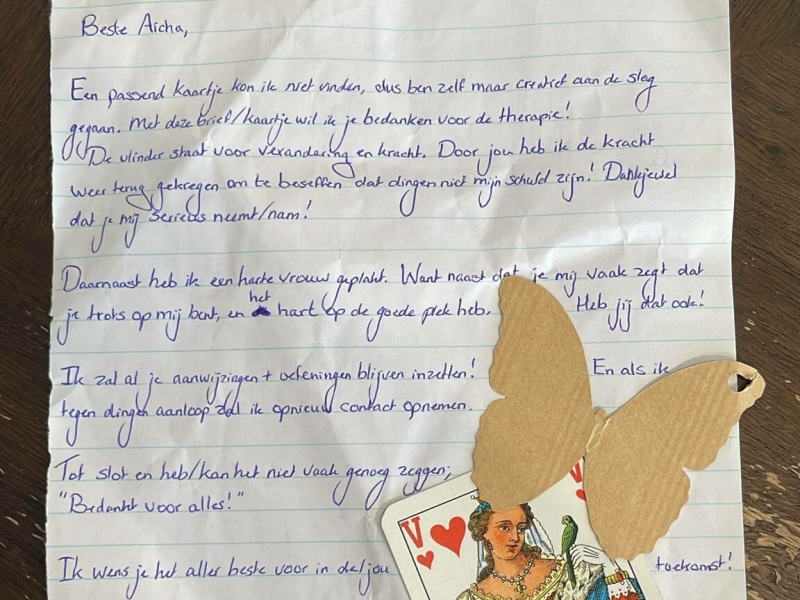 Beste Aicha,
Een passend kaartje kon ik niet vinden, dus ben zelf maar creatief aan de slag
gegaan. Met deze brief/kaartje wil ik je bedanken voor de therapie!
De vlinder staat voor verandering en kracht. Door jou heb ik de kracht
weer terug gekregen om te beseffen dat dingen niet mijn schuld zijn! Dankjewel
dat je mij serieus neemt/nam!
Daarnaast heb ik een harte vrouw geplakt. Want naast dat je mij vaak zegt dat
je trots op mij bent, en het hart op de goede plek heb. Heb jij dat ook!
Ik zal al je aanwijzingen + oefeningen blijven inzetten! En als ik
tegen dingen aanloop zal ik opnieuw contact opnemen.
Tot slot en heb/kan het niet vaak genoeg zeggen;
"Bedankt voor alles!"
V
V
Ik wens je het aller beste voor in de/jou toekomst!